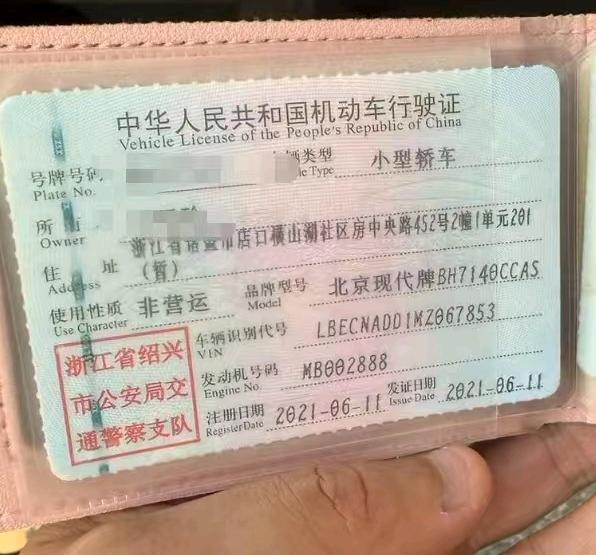 中华人民共和国机动车行驶证
Vehicle License of the People's Republic of China
号牌号码
Plate No.
辆类型 小型轿车
le Type
所
Owner
住 址 浙江省诸暨市店口横山湖社区房中央路452号2幢1单元201
Address (暂)
使用性质 非营运
Use Character
品牌型号 北京现代牌BH7140CCAS
Model
车辆识别代号 LBECNADD1MZ067853
VIN
发动机号码 MB002888
Engine No.
注册日期 2021-06-11
Register Date
发证日期 2021-06-11
Issue Date
浙江省绍兴
市公安局交
通警察支队